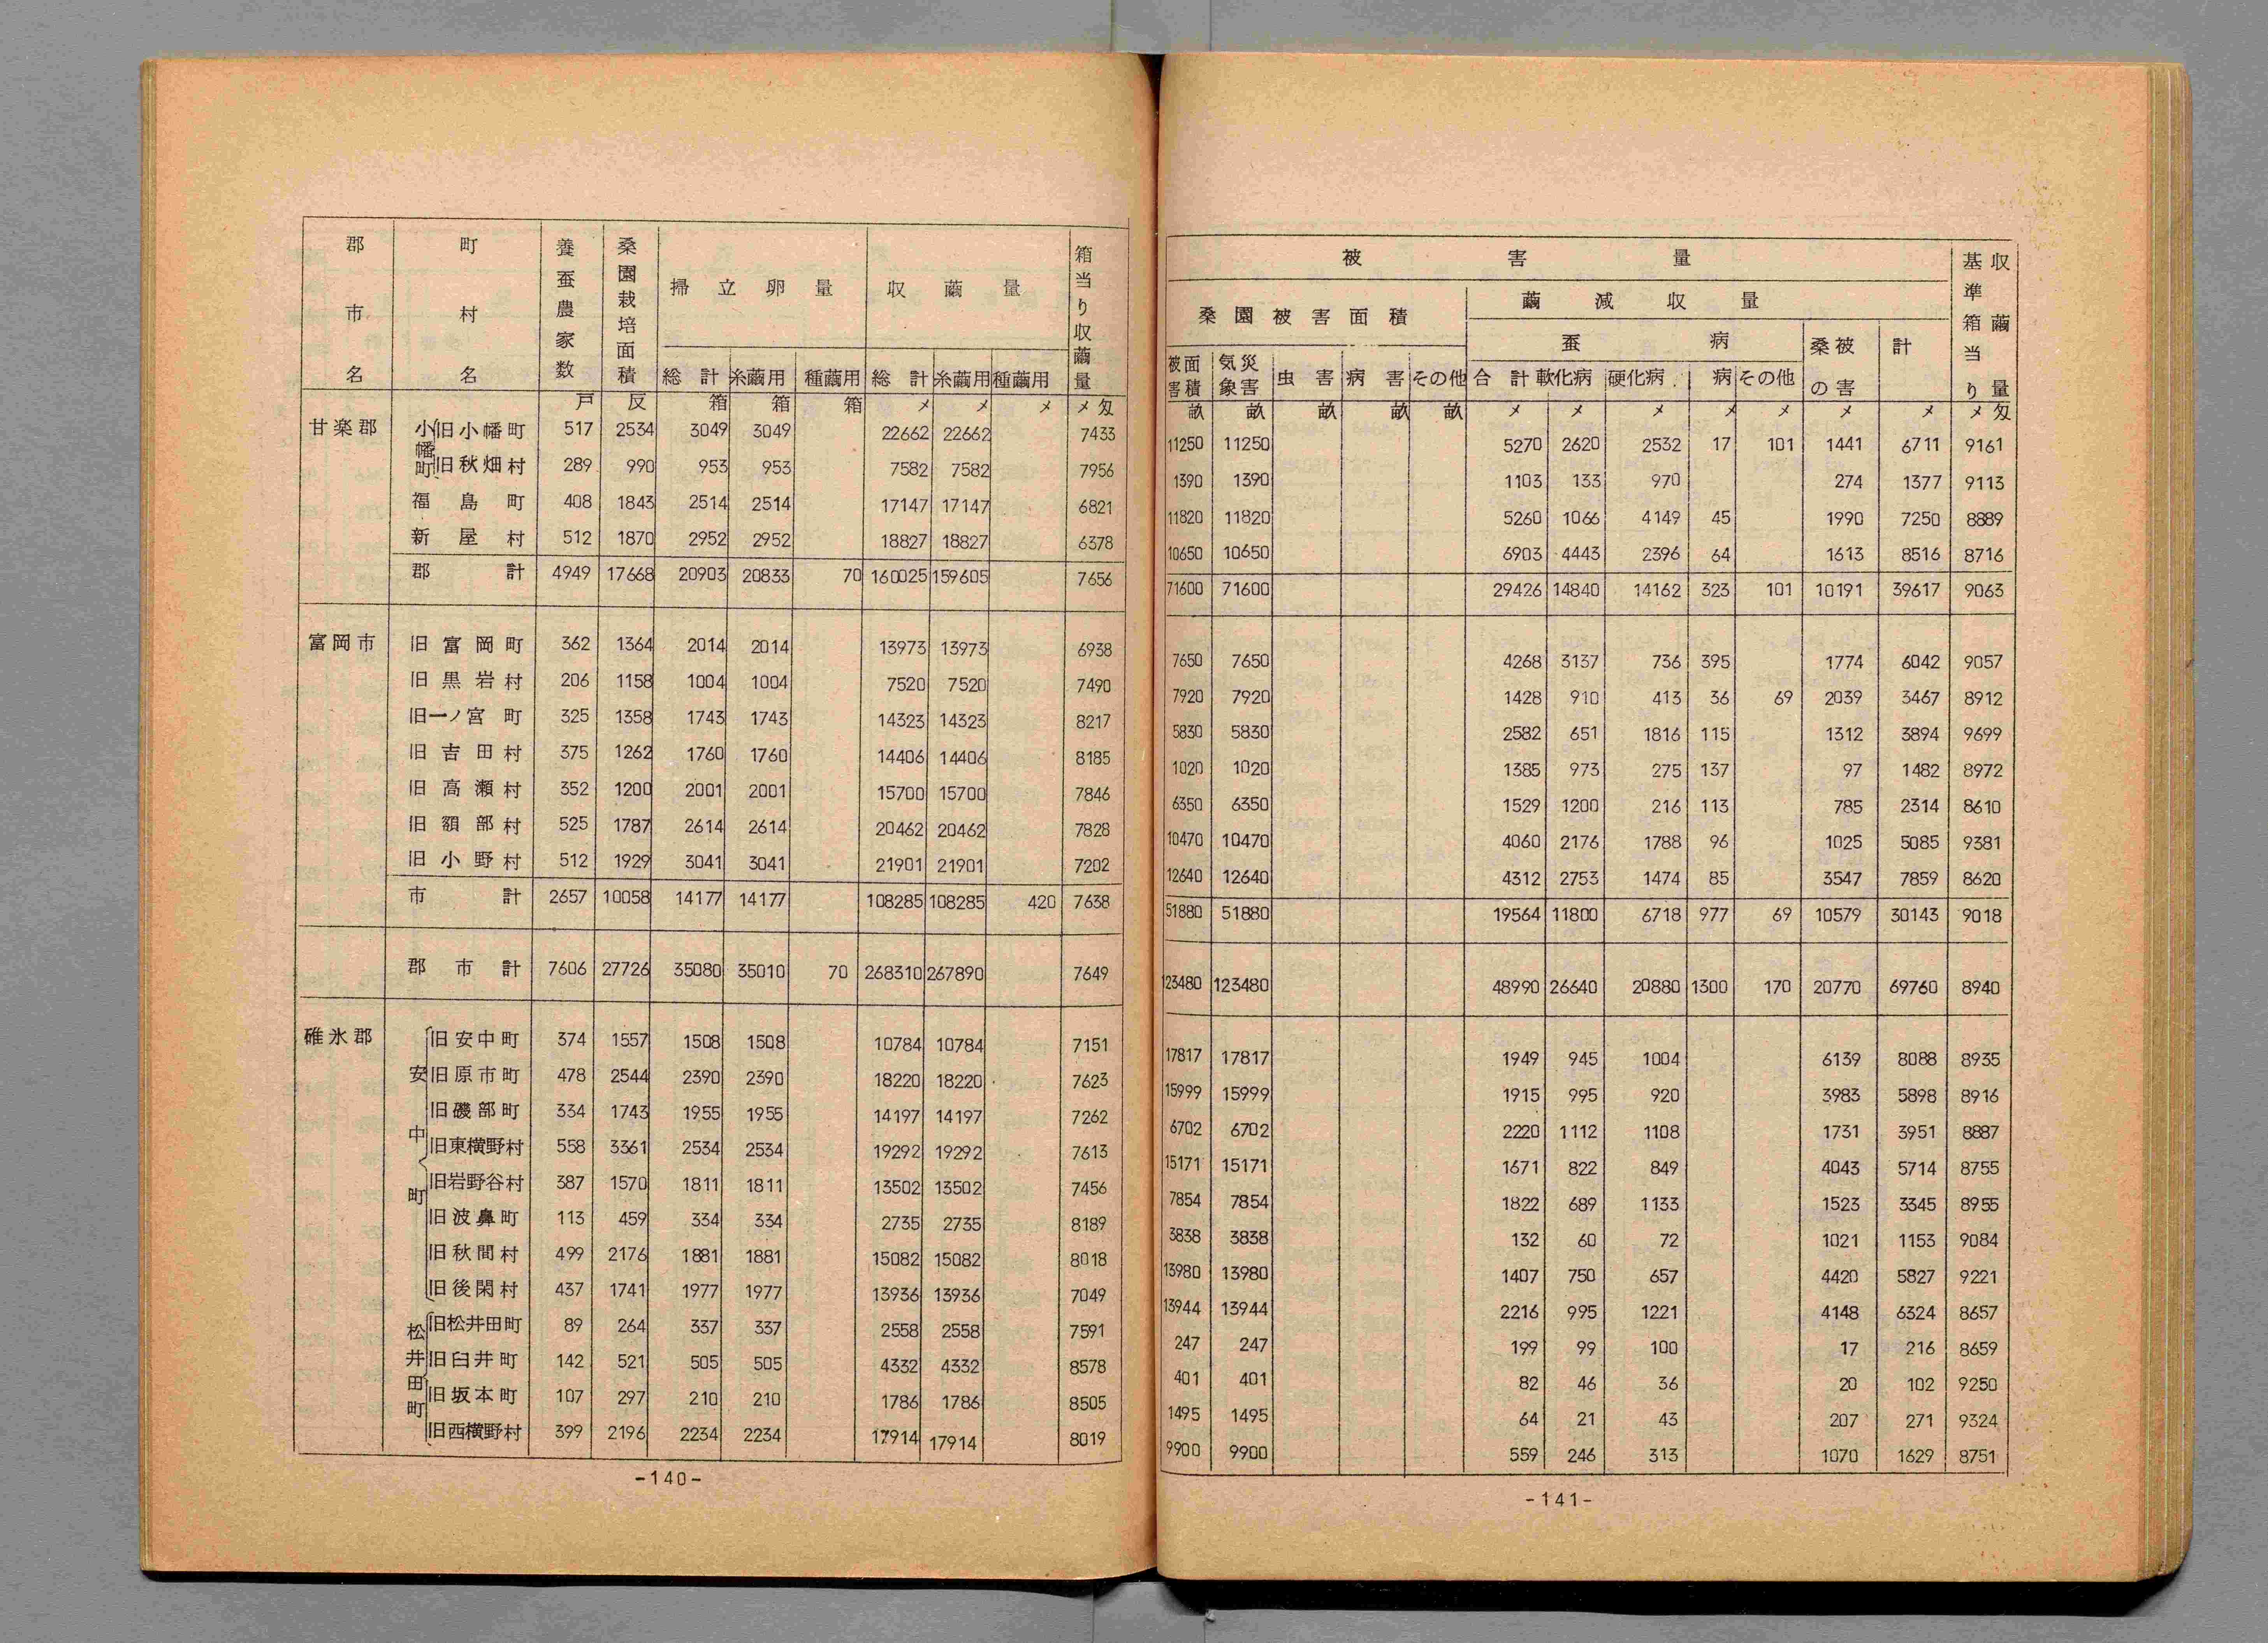 郡市名 町村名 養蚕農家数 桑園栽培面積 掃立卵量 収繭量 箱当り収繭量
総計 糸繭用 種繭用 総計 糸繭用 種繭用
戸 反 箱 箱 箱 メ メ メ メ匁
甘楽郡 小幡町 旧小幡町 517 2534 3049 3049 22662 22662 7433
旧秋畑村 289 990 953 953 7582 7582 7956
福島町 408 1843 2514 2514 17147 17147 6821
新屋村 512 1870 2952 2952 18827 18827 6378
郡計 4949 17668 20903 20833 70 160025 159605 7656
富岡市 旧富岡町 362 1364 2014 2014 13973 13973 6938
旧黒岩村 206 1158 1004 1004 7520 7520 7490
旧一ノ宮町 325 1358 1743 1743 14323 14323 8217
旧吉田村 375 1262 1760 1760 14406 14406 8185
旧高瀬村 352 1200 2001 2001 15700 15700 7846
旧額部村 525 1787 2614 2614 20462 20462 7828
旧小野村 512 1929 3041 3041 21901 21901 7202
市計 2657 10058 14177 14177 108285 108285 420 7638
郡市計 7606 27726 35080 35010 70 268310 267890 7649
碓氷郡 安中町 旧安中町 374 1557 1508 1508 10784 10784 7151
旧原市町 478 2544 2390 2390 18220 18220 7623
旧磯部町 334 1743 1955 1955 14197 14197 7262
旧東横野村 558 3361 2534 2534 19292 19292 7613
旧岩野谷村 387 1570 1811 1811 13502 13502 7456
旧波鼻町 113 459 334 334 2735 2735 8189
旧秋間村 499 2176 1881 1881 15082 15082 8018
旧後閑村 437 1741 1977 1977 13936 13936 7049
松井田町 旧松井田町 89 264 337 337 2558 2558 7591
旧臼井町 142 521 505 505 4332 4332 8578
旧坂本町 107 297 210 210 1786 1786 8505
旧西横野村 399 2196 2234 2234 17914 17914 8019
-140-
被害量 基準箱当り収繭量
桑園被害面積 繭減収量
蚕病 桑の被害 計
被害面積 気象災害 虫害 病害 その他 合計 軟化病 硬化病 病 その他
畝 畝 畝 畝 畝 メ メ メ メ メ メ メ メ匁
11250 11250 5270 2620 2532 17 101 1441 6711 9161
1390 1390 1103 133 970 274 1377 9113
11820 11820 5260 1066 4149 45 1990 7250 8889
10650 10650 6903 4443 2396 64 1613 8516 8716
71600 71600 29426 14840 14162 323 101 10191 39617 9063
7650 7650 4268 3137 736 395 1774 6042 9057
7920 7920 1428 910 413 36 69 2039 3467 8912
5830 5830 2582 651 1816 115 1312 3894 9699
1020 1020 1385 973 275 137 97 1482 8972
6350 6350 1529 1200 216 113 785 2314 8610
10470 10470 4060 2176 1788 96 1025 5085 9381
12640 12640 4312 2753 1474 85 3547 7859 8620
51880 51880 19564 11800 6718 977 69 10579 30143 9018
123480 123480 48990 26640 20880 1300 170 20770 69760 8940
17817 17817 1949 945 1004 6139 8088 8935
15999 15999 1915 995 920 3983 5898 8916
6702 6702 2220 1112 1108 1731 3951 8887
15171 15171 1671 822 849 4043 5714 8755
7854 7854 1822 689 1133 1523 3345 8955
3838 3838 132 60 72 1021 1153 9084
13980 13980 1407 750 657 4420 5827 9221
13944 13944 2216 995 1221 4148 6324 8657
247 247 199 99 100 17 216 8659
401 401 82 46 36 20 102 9250
1495 1495 64 21 43 207 271 9324
9900 9900 559 246 313 1070 1629 8751
-141-